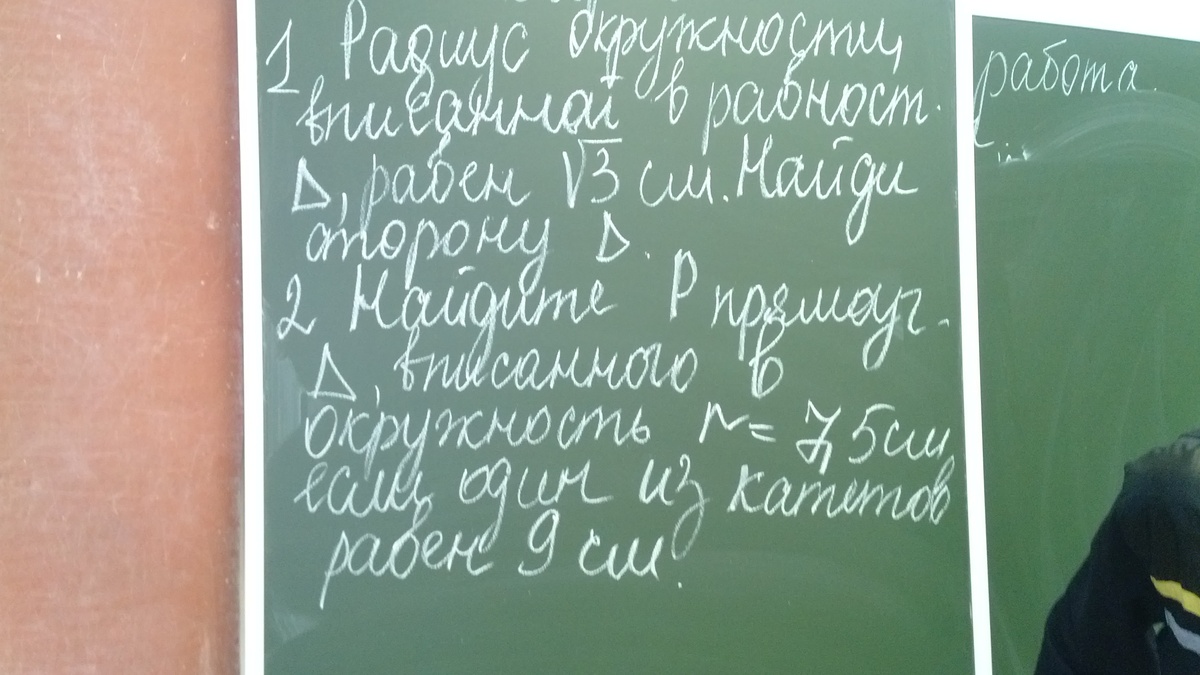 1 Радиус окружности,
вписанной в равност.
Δ, равен √3 см. Найди
сторону Δ.
2 Найдите P прямоуг.
Δ, вписанного в
окружность r = 7,5 см,
если один из катетов
равен 9 см.
работа.